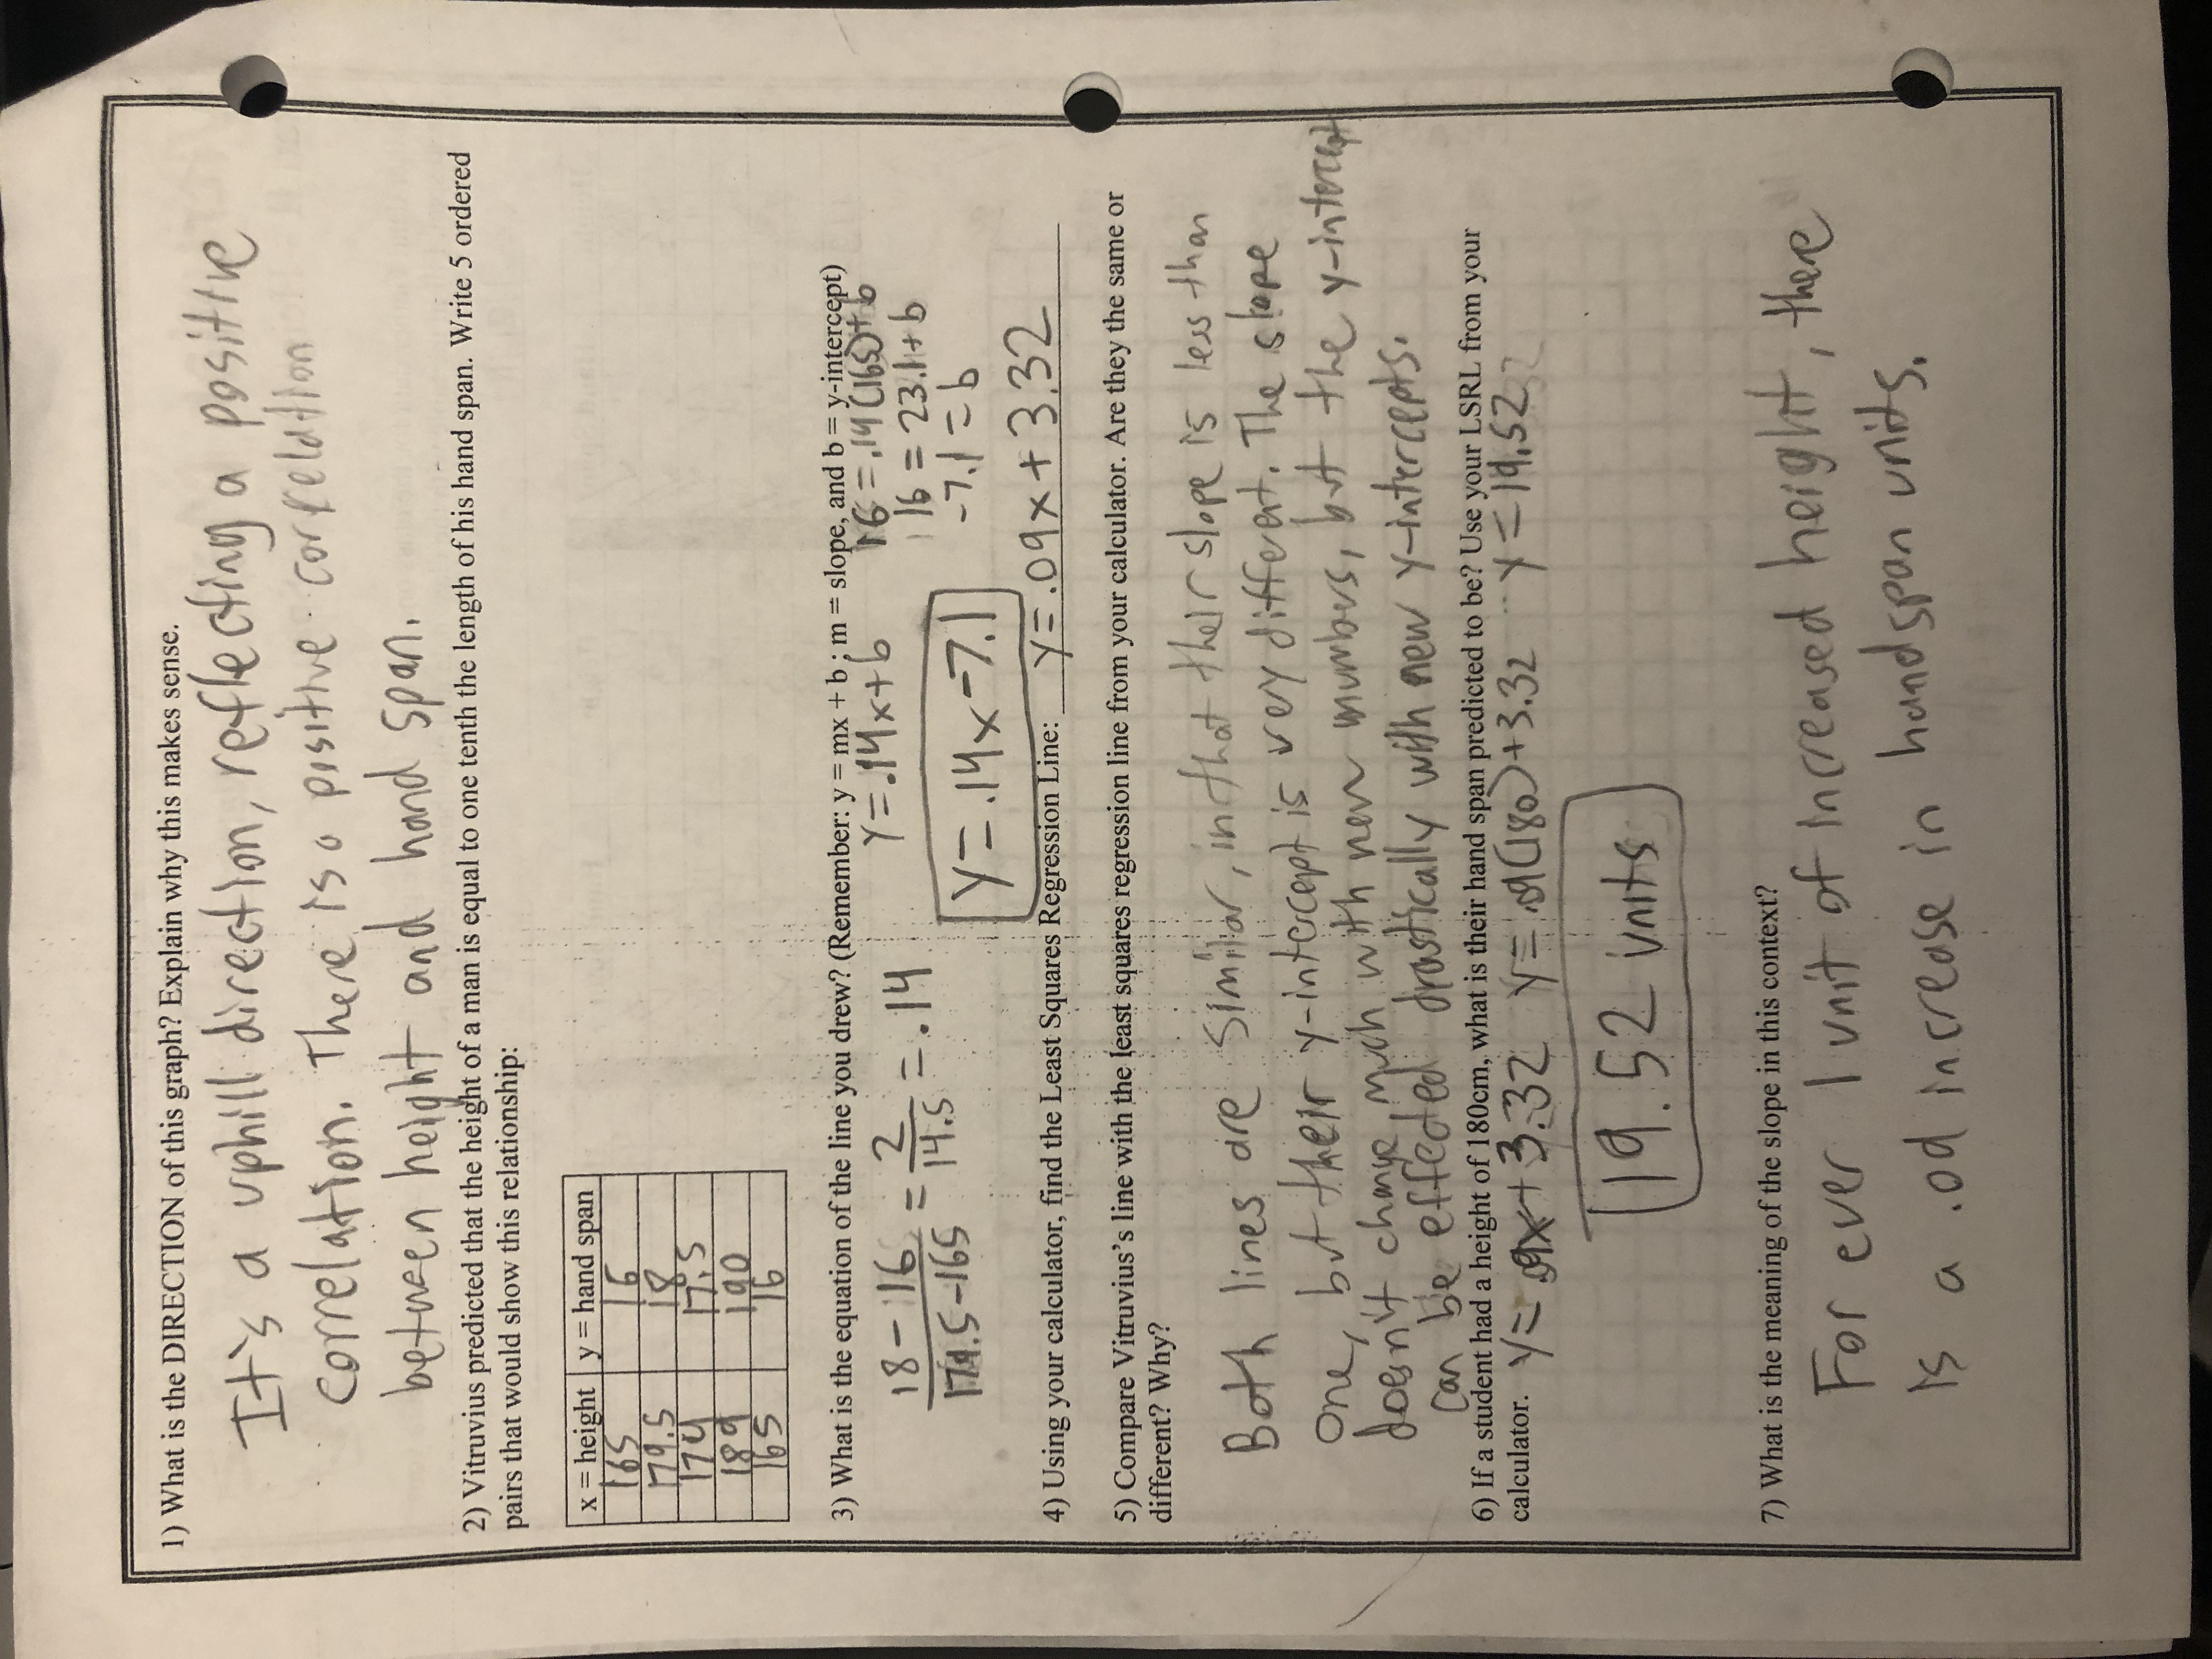 1) What is the DIRECTION of this graph? Explain why this makes sense.
It's a uphill direction, reflecting a positive
correlation. There is a positive correlation
between height and hand span.
2) Vitruvius predicted that the height of a man is equal to one tenth the length of his hand span. Write 5 ordered
pairs that would show this relationship:
x = height y = hand span
165 16
179.5 18
174 17.5
189 190
165 16
3) What is the equation of the line you drew? (Remember: y = mx + b ; m = slope, and b = y-intercept)
18-16/179.5-165 = 2/14.5 = .14
y=.14x+b
16=.14(165)+b
16=23.1+b
-7.1=b
y=.14x-7.1
4) Using your calculator, find the Least Squares Regression Line: y=.09x+3.32
5) Compare Vitruvius's line with the least squares regression line from your calculator. Are they the same or
different? Why?
Both lines are similar, in that their slope is less than
one, but their y-intercept is very different. The slope
doesn't change much with new numbers, but the y-intercept
can be effected drastically with new y-intercepts.
6) If a student had a height of 180cm, what is their hand span predicted to be? Use your LSRL from your
calculator. y=.09x+3.32 y=.09(180)+3.32 y=19.52
19.52 units
7) What is the meaning of the slope in this context?
For ever 1 unit of increased height, there
is a .09 increase in handspan units.